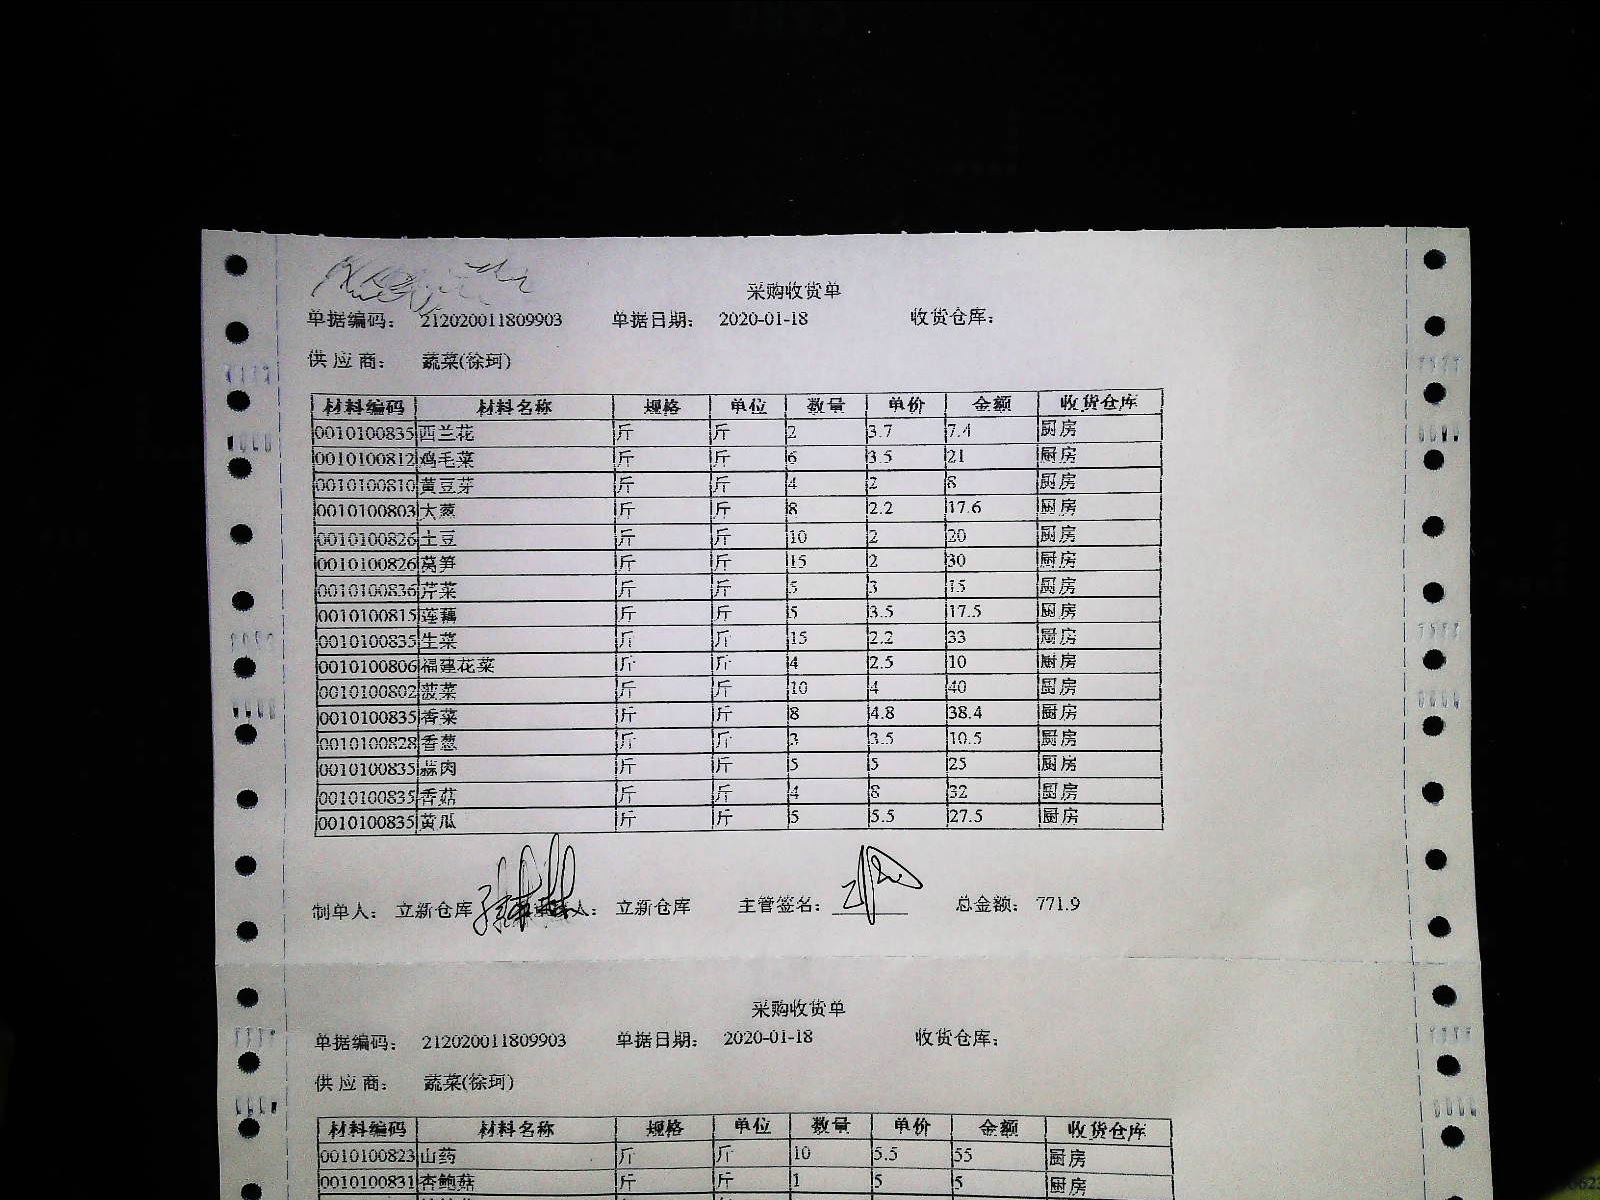 采购收货单
单据编码： 212020011809903 单据日期： 2020-01-18 收货仓库：
供 应 商： 蔬菜(徐珂)
材料编码 材料名称 规格 单位 数量 单价 金额 收货仓库
0010100835 西兰花 斤 斤 2 3.7 7.4 厨房
0010100812 鸡毛菜 斤 斤 6 3.5 21 厨房
0010100810 黄豆芽 斤 斤 4 2 8 厨房
0010100803 大葱 斤 斤 8 2.2 17.6 厨房
0010100826 土豆 斤 斤 10 2 20 厨房
0010100826 莴笋 斤 斤 15 2 30 厨房
0010100836 芹菜 斤 斤 5 3 15 厨房
0010100815 莲藕 斤 斤 5 3.5 17.5 厨房
0010100835 生菜 斤 斤 15 2.2 33 厨房
0010100806 福建花菜 斤 斤 4 2.5 10 厨房
0010100802 菠菜 斤 斤 10 4 40 厨房
0010100835 香菜 斤 斤 8 4.8 38.4 厨房
0010100828 香葱 斤 斤 3 3.5 10.5 厨房
0010100835 蒜肉 斤 斤 5 5 25 厨房
0010100835 香菇 斤 斤 4 8 32 厨房
0010100835 黄瓜 斤 斤 5 5.5 27.5 厨房
制单人： 立新仓库 人： 立新仓库 主管签名： 总金额： 771.9
采购收货单
单据编码： 212020011809903 单据日期： 2020-01-18 收货仓库：
供 应 商： 蔬菜(徐珂)
材料编码 材料名称 规格 单位 数量 单价 金额 收货仓库
0010100823 山药 斤 斤 10 5.5 55 厨房
0010100831 杏鲍菇 斤 斤 1 5 5 厨房